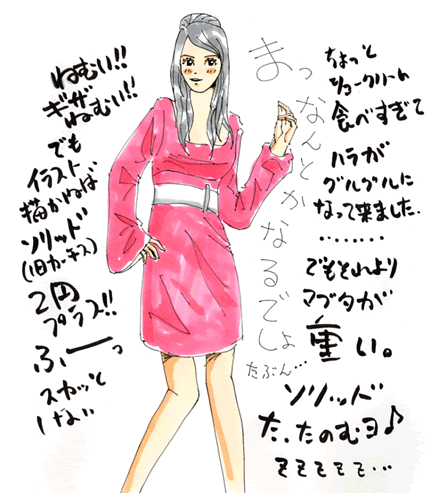 ねむい!!
ギザ
ねむい!!
でも
イラスト
描かねば
ソリッド
２円
プラス!!
ふーっ
スカッと
しない
まっなんとかなるでしょ
たぶん…
ちょっと
シュークリーム
食べすぎて
ハラが
グルグルに
なって来ました..
........
でもそれより
マブタが
重い。
ソリッド
た、たのむヨ♪
そそそそそ…